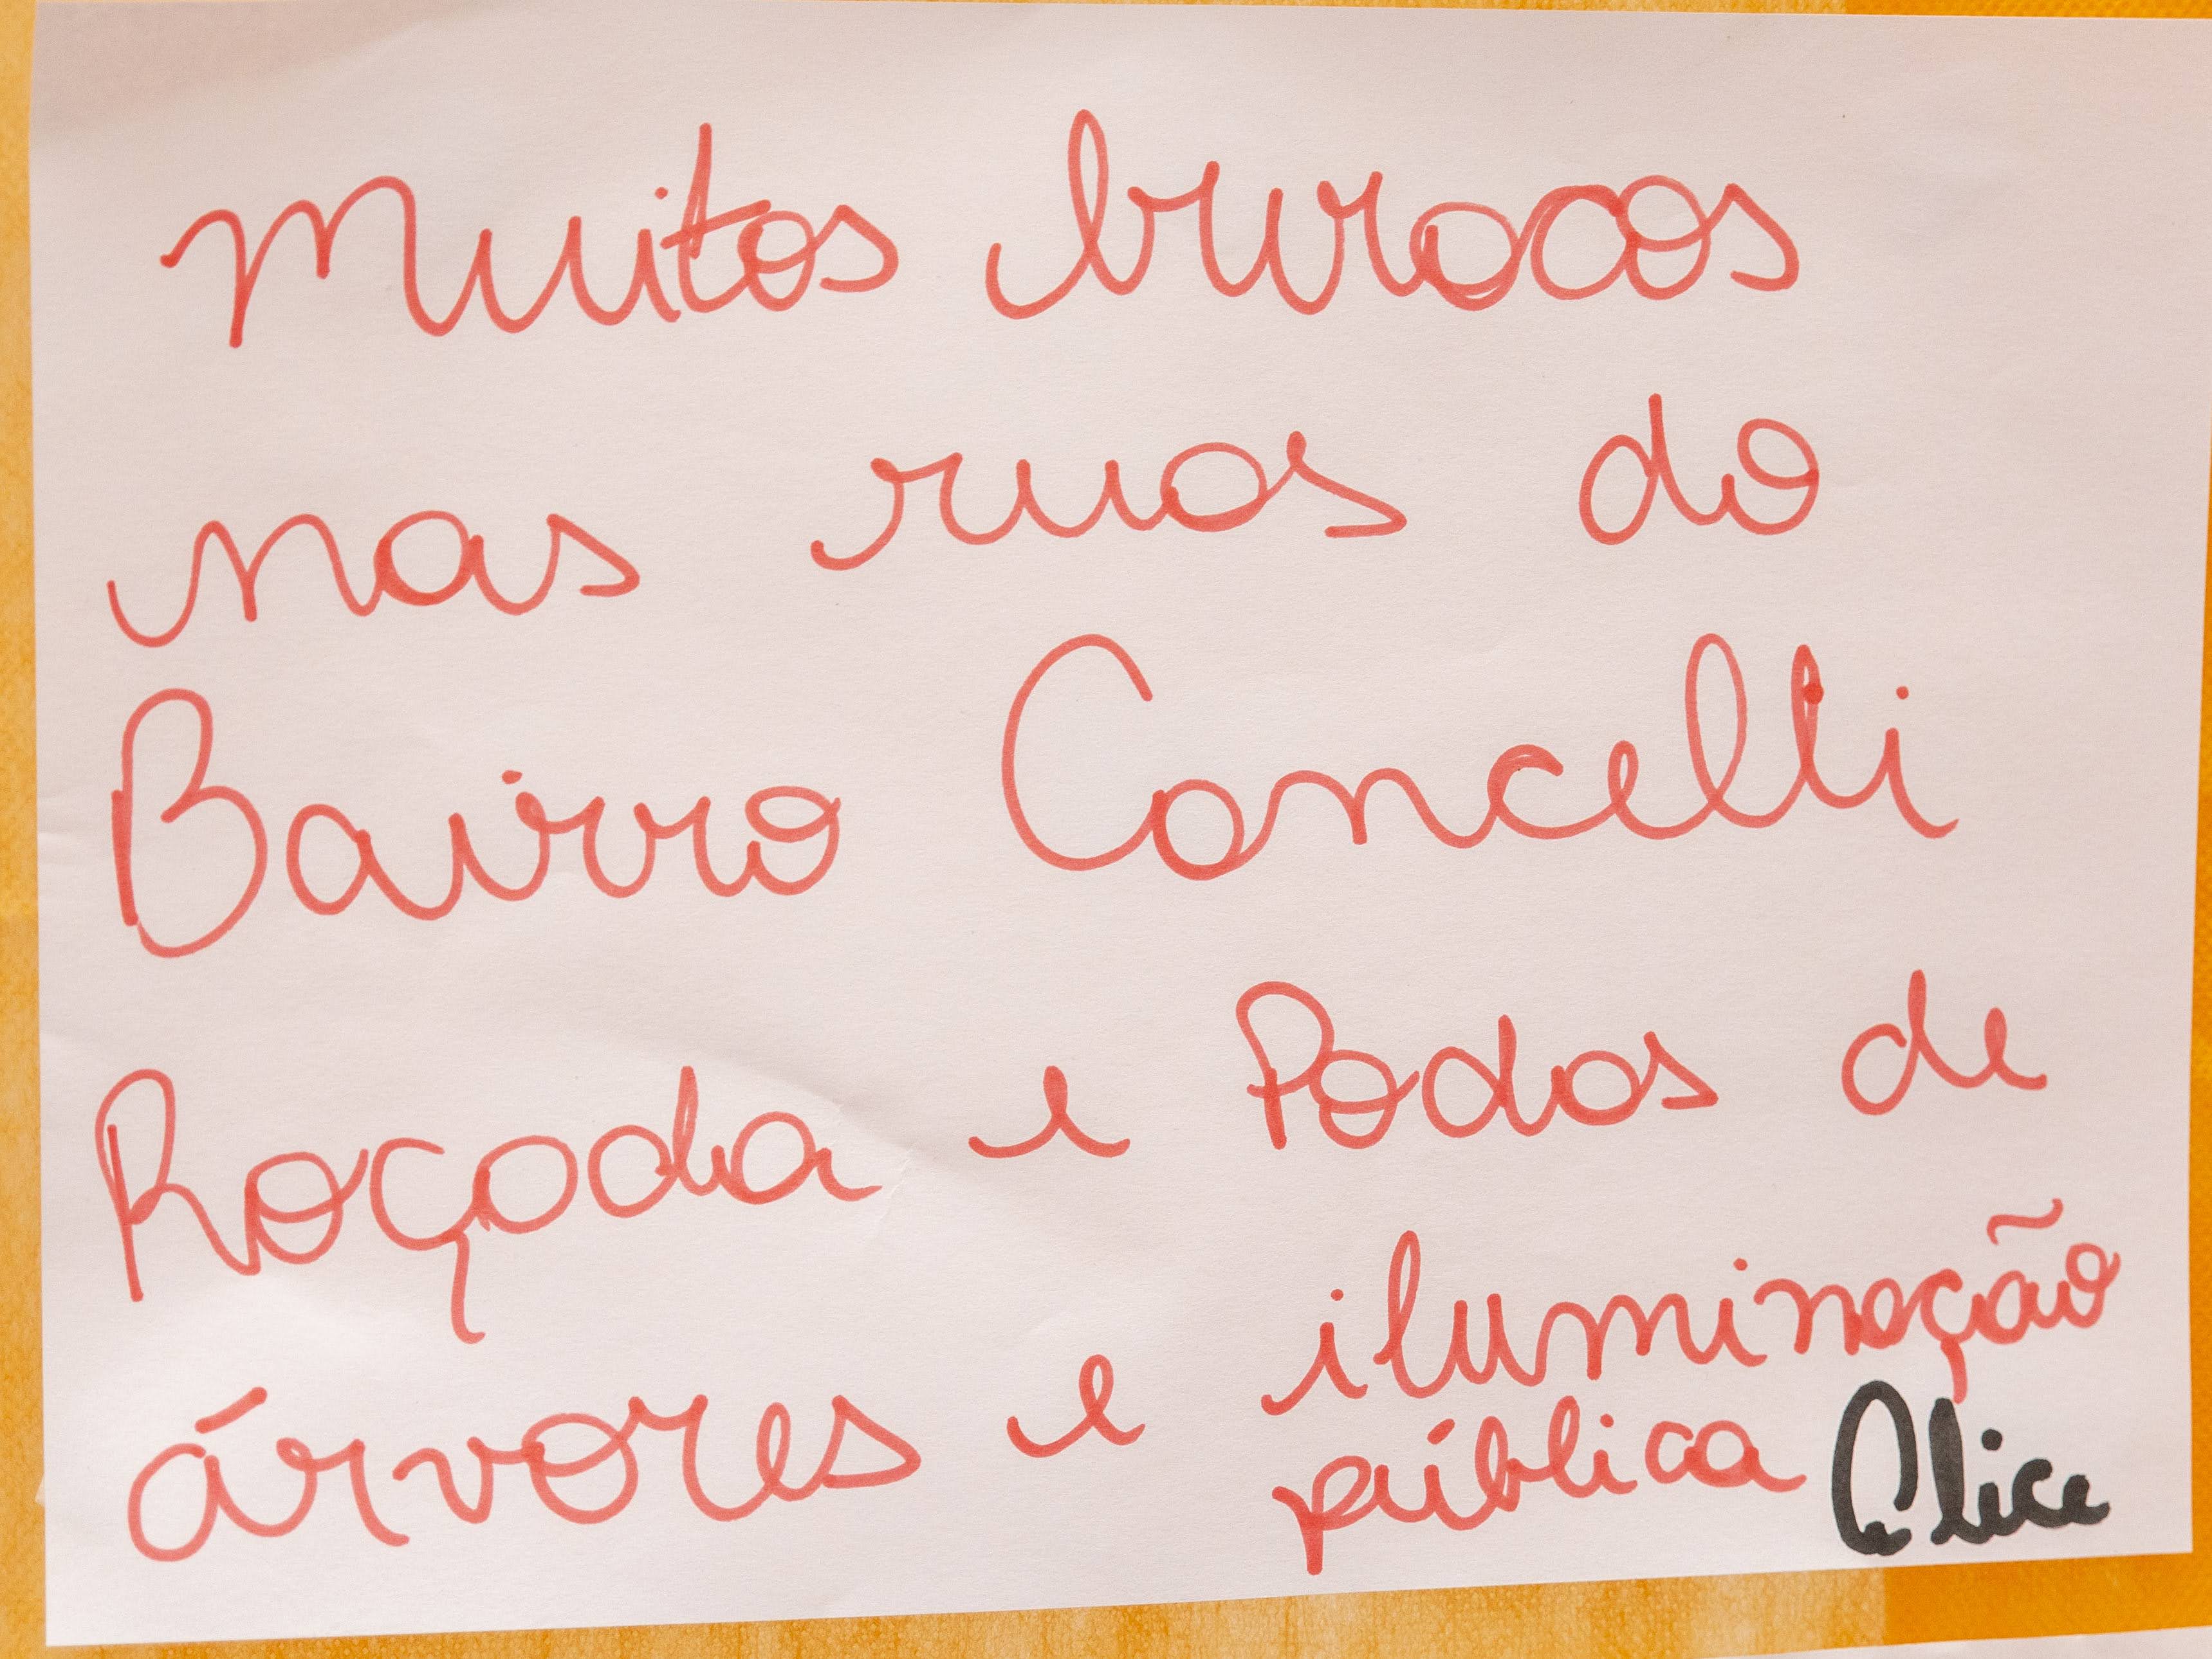 Muitos buracos
nas ruas do
Bairro Concelli
Roçada e Podas de
árvores e iluminação
pública Alice